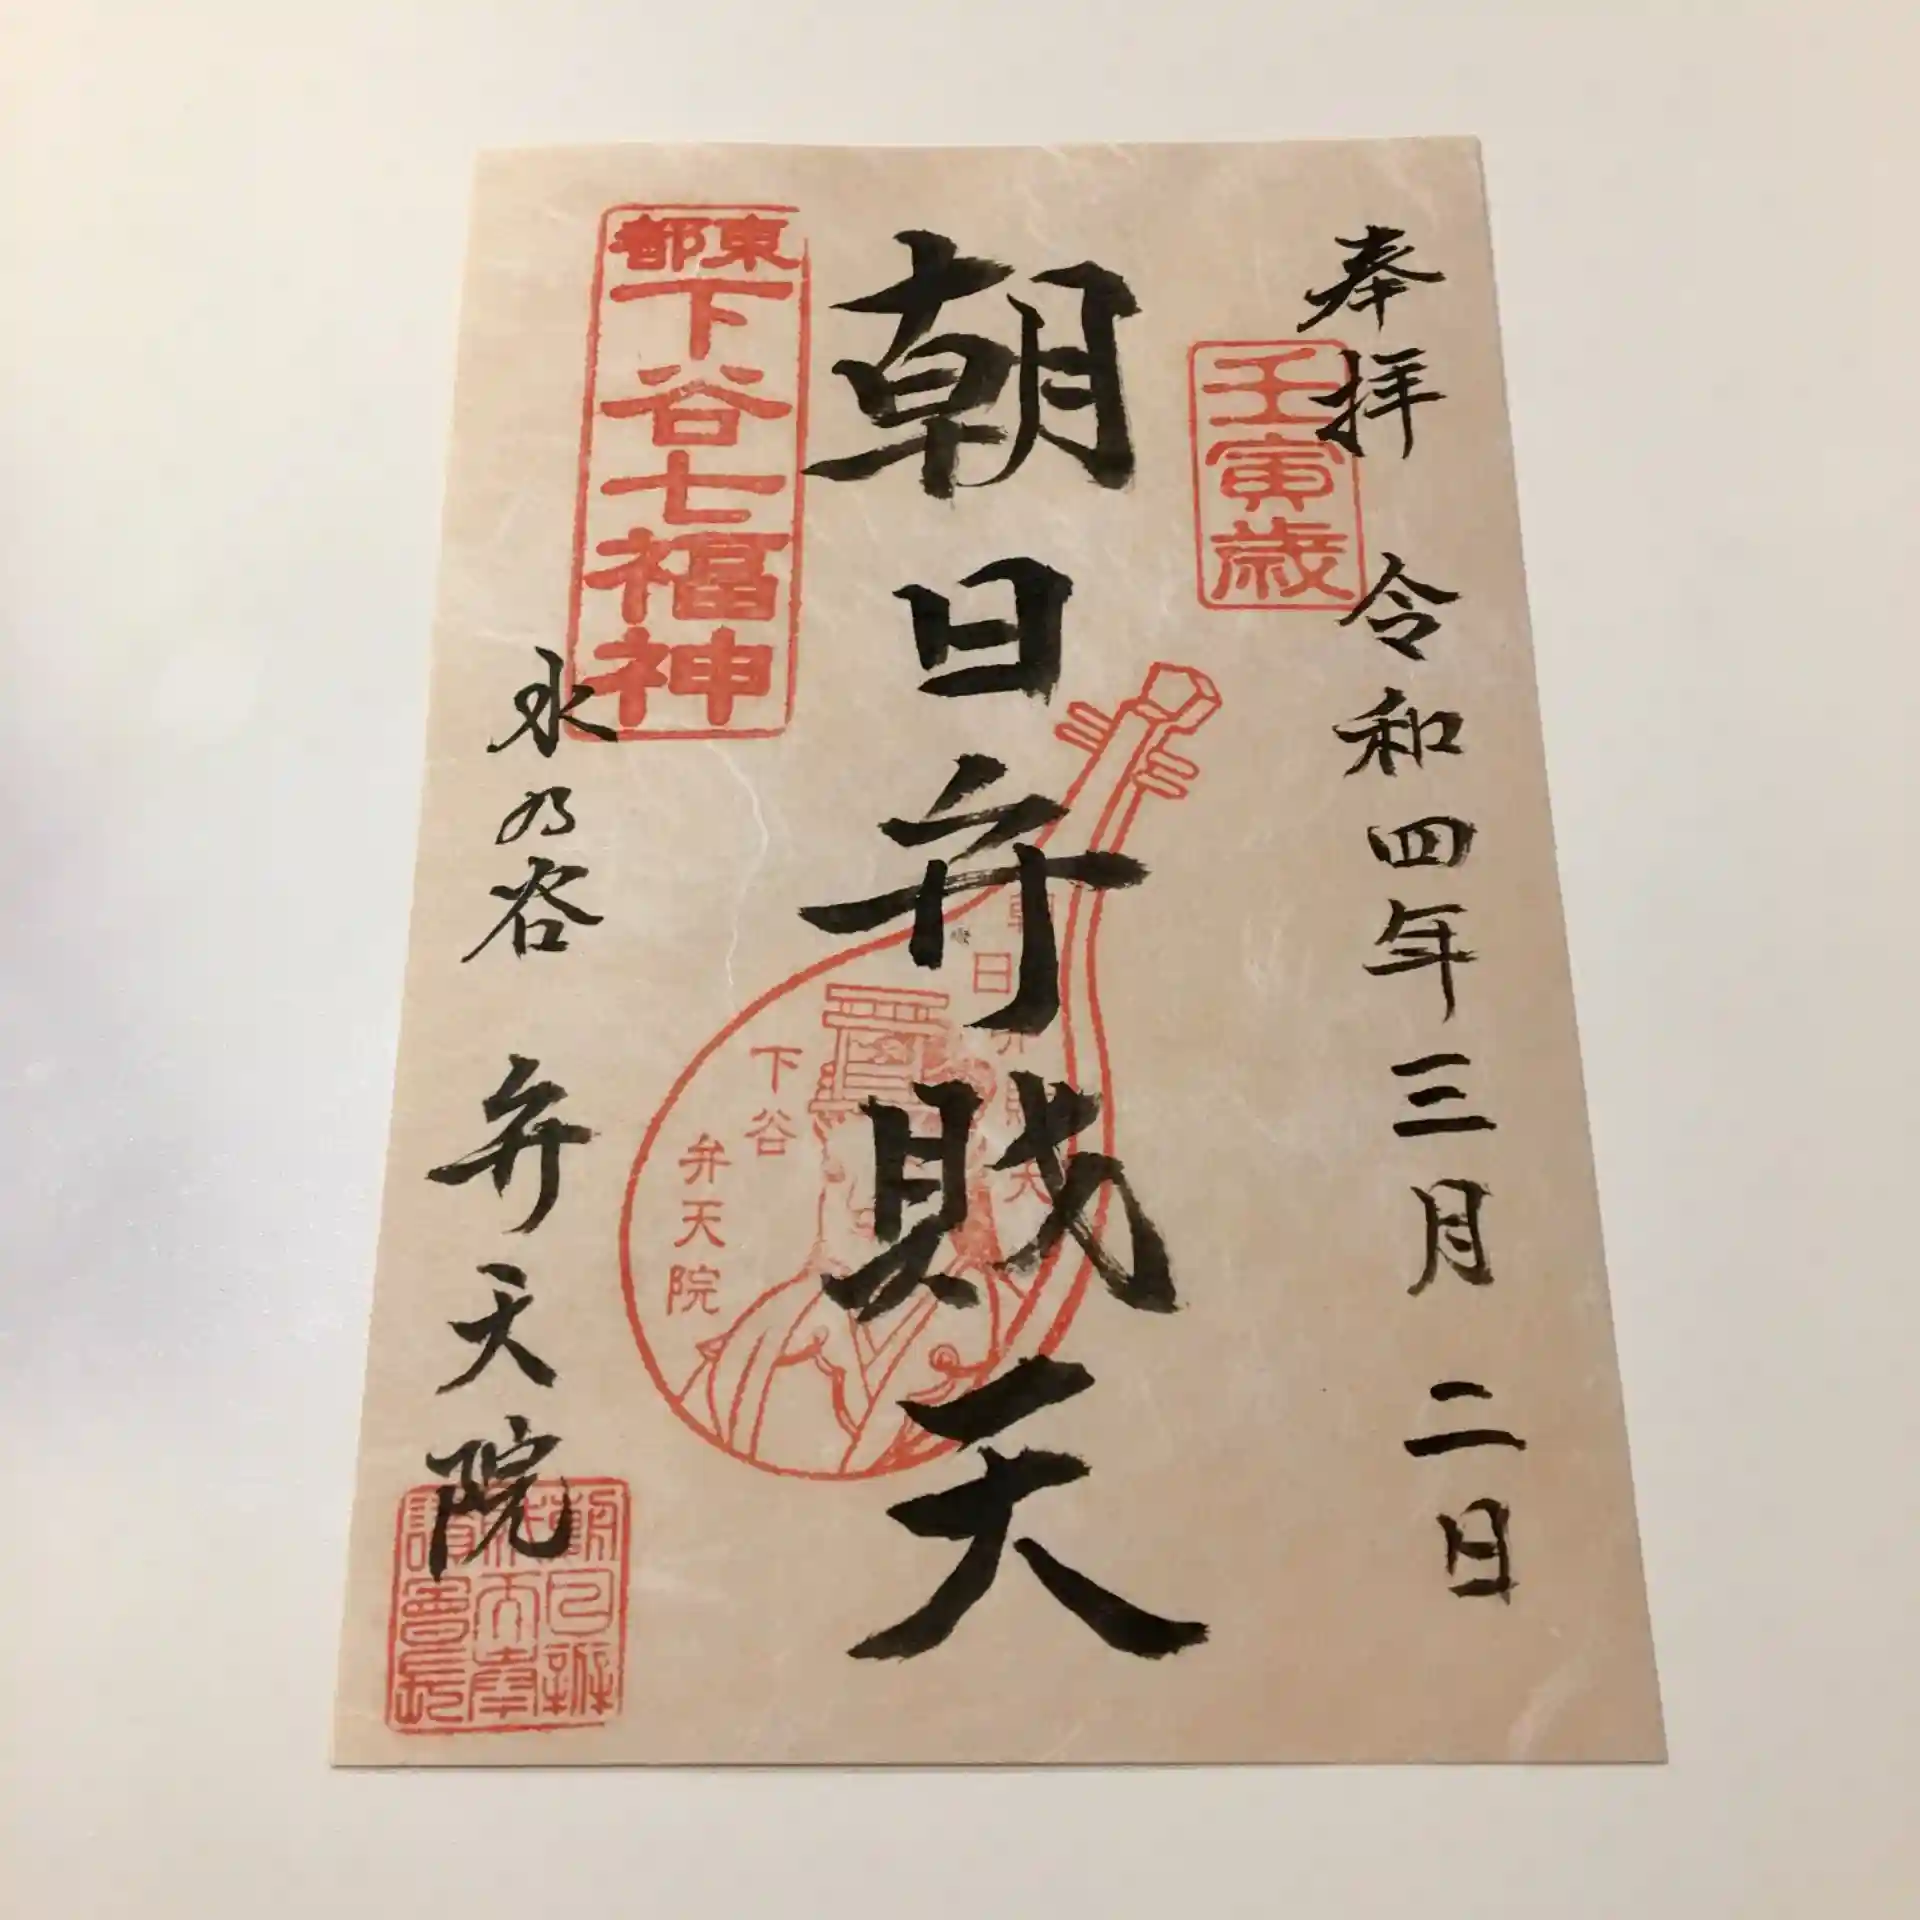 奉拝
令和四年三月二日
壬寅歳
朝日弁財天
朝日弁財天
下谷
弁天院
東都
下谷七福神
水乃谷
弁天院
朝日辨
財天奉
讃會長